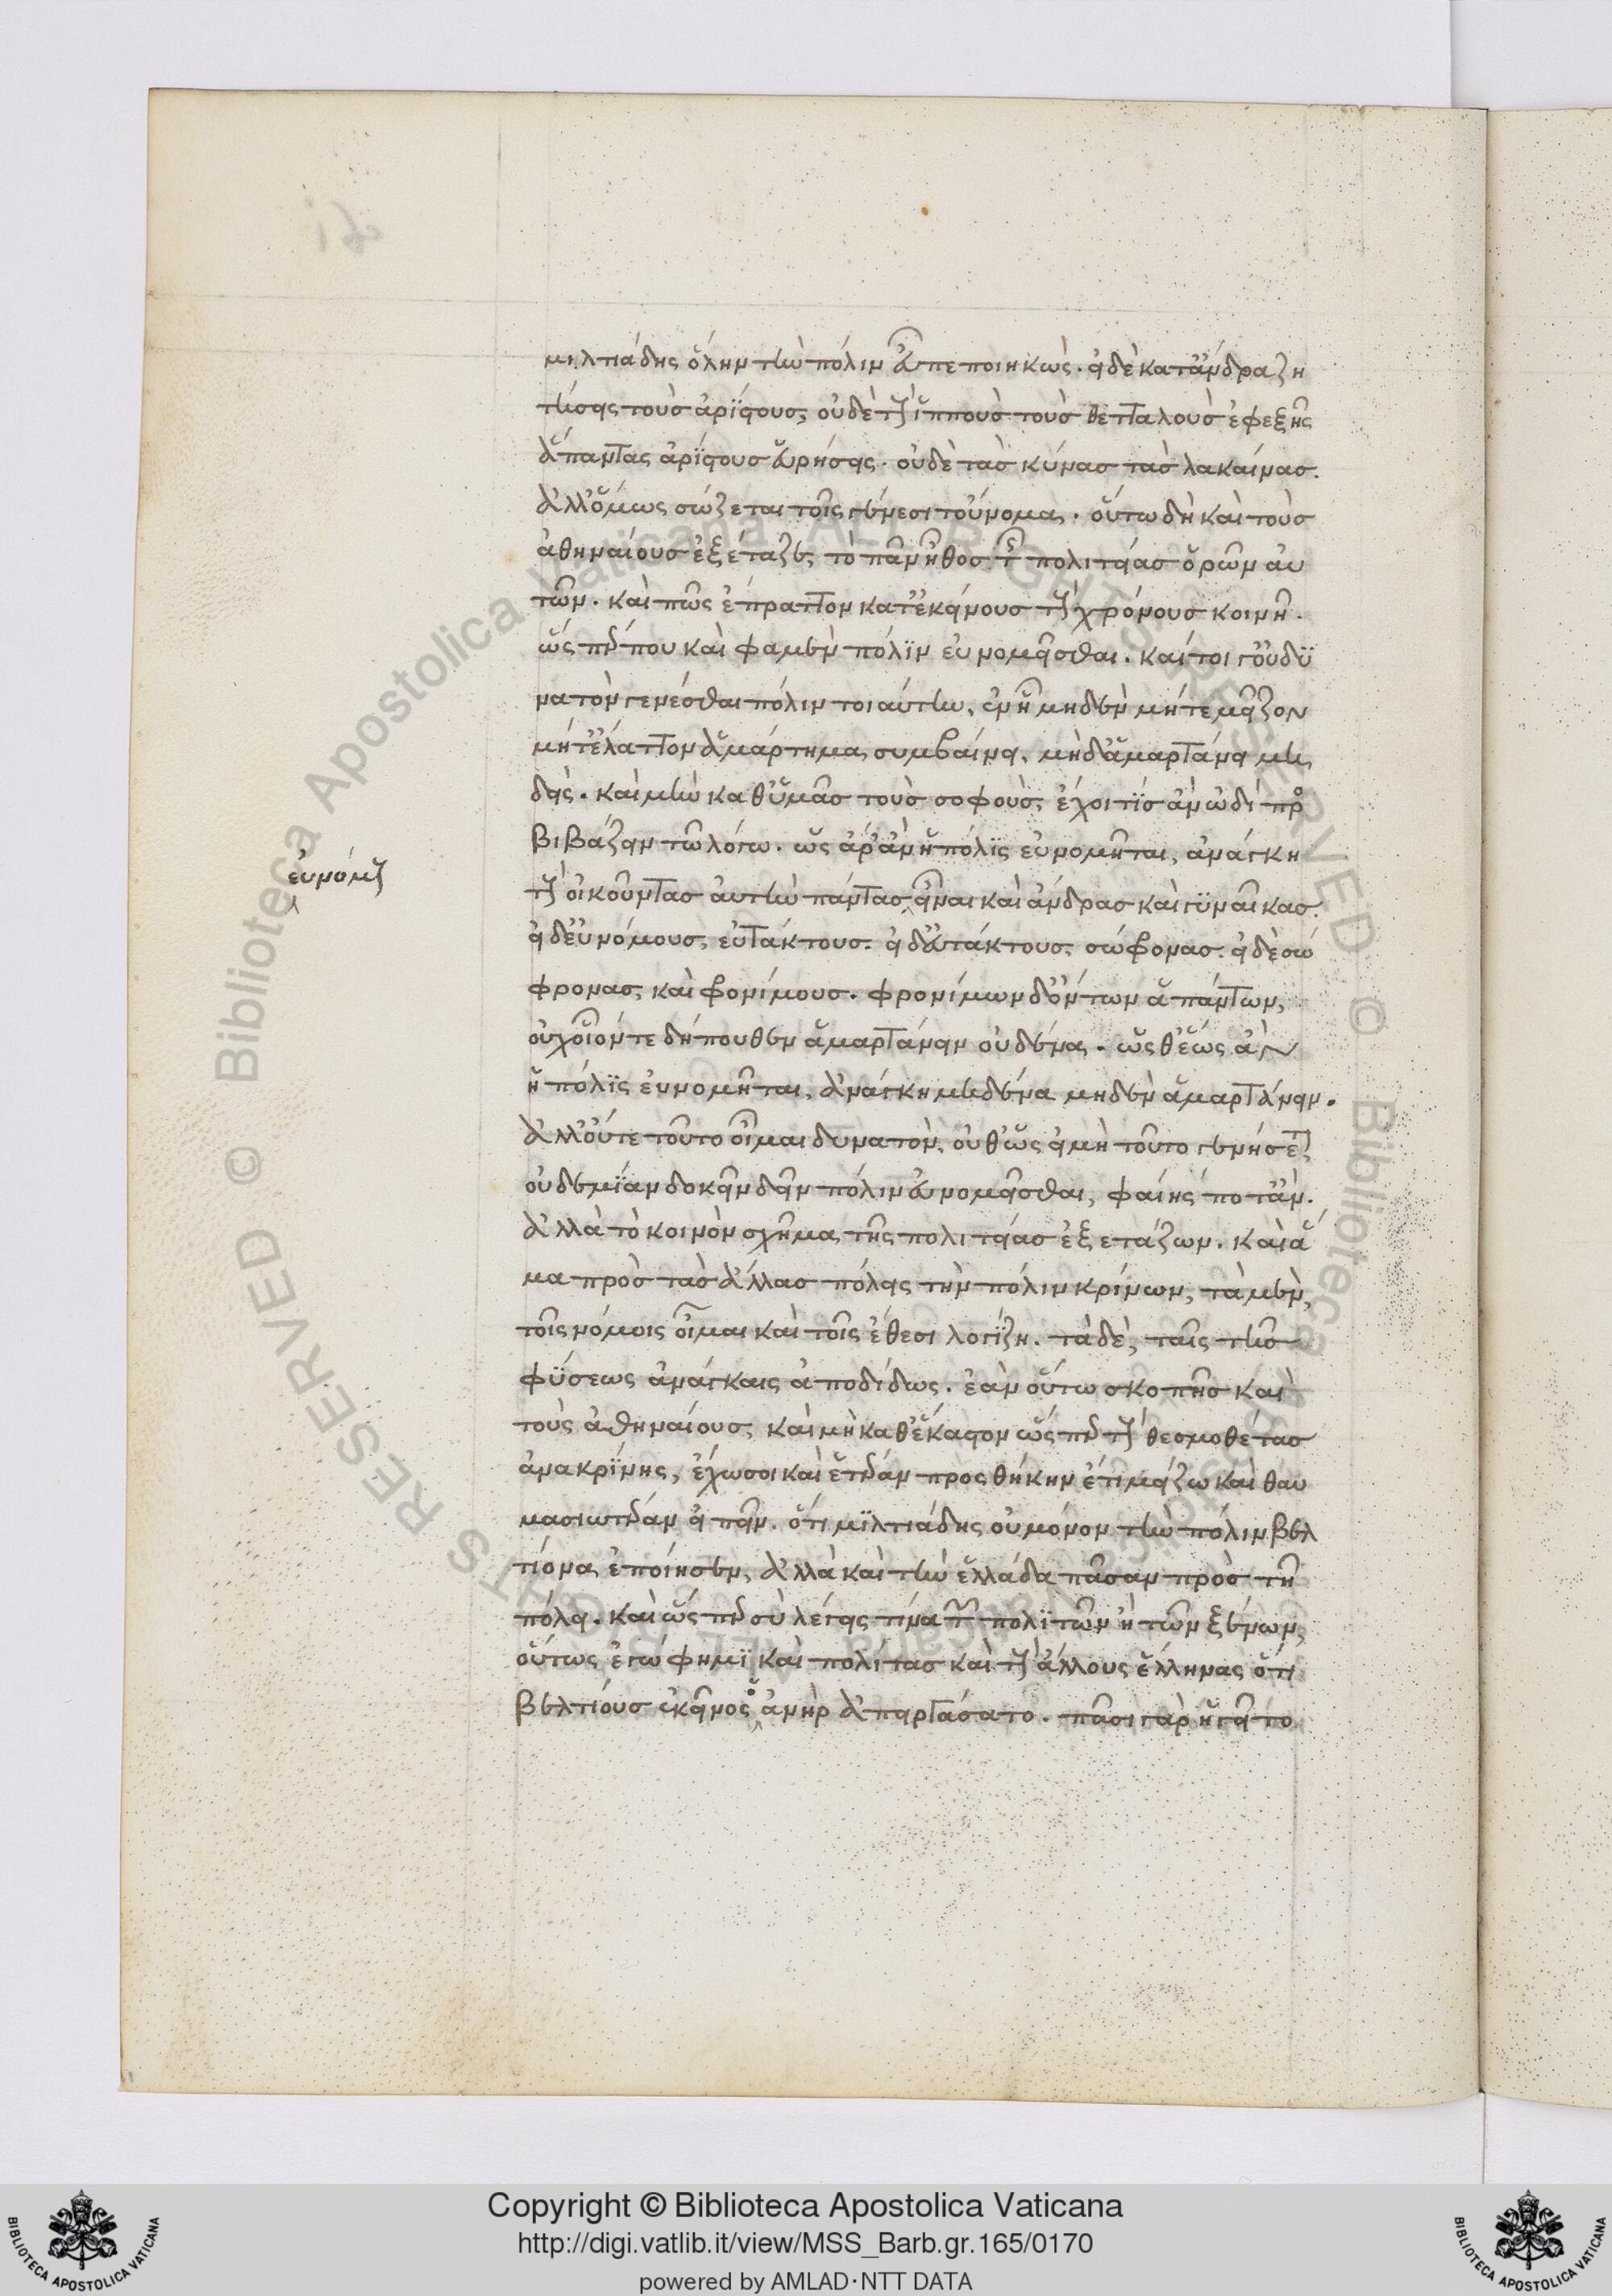 μιλτιάδης ὅλην τὴν πόλιν εὖ πεποιηκὼς. εἰ δὲ κατ' ἄνδρα ζη
τήσεις τοὺς ἀρίστους, οὐδὲ τοὺς ἵππους τοὺς θετταλοὺς ἐφεξῆς
ἅπαντας ἀρίστους εὑρήσεις. οὐδὲ τὰς κύνας τὰς λακαίνας.
ἀλλ' ὅμως σώζεται τοῖς γένεσι τοὔνομα. οὕτω δὴ καὶ τοὺς
ἀθηναίους ἐξέταζε, τὸ πᾶν ἦθος τῆς πολιτείας ὁρῶν αὐ
τῶν. καὶ πῶς ἔπραττον κατ' ἐκείνους τοὺς χρόνους κοινῆ.
ὥσπερ που καὶ φαμὲν πόλιν εὐνομεῖσθαι. καί τοι γ' οὐ δυ
νατὸν γενέσθαι πόλιν τοιαύτην, ἐν ᾗ μηδὲν μήτε μεῖζον
μήτ' ἔλαττον ἁμάρτημα συμβαίνει, μηδ' ἁμαρτάνει μη
δείς. καὶ μὴν καθ' ὑμᾶς τοὺς σοφοὺς, ἔχοι τὶς ἂν ὡδὶ προ
βιβάζειν τῶ λόγω. ὡς ἄρ' ἂν ἡ πόλις εὐνομῆται, ἀνάγκη
τοὺς οἰκοῦντας αὐτὴν πάντας εἶναι καὶ ἄνδρας καὶ γυναῖκας.
εὐνόμους
εἰ δ' εὐνόμους, εὐτάκτους. εἰ δ' εὐτάκτους, σώφρονας. εἰ δὲ σώ
φρονας, καὶ φρονίμους. φρονίμων δ' ὄντων ἁπάντων,
οὐχ οἷόν τε δήπουθεν ἁμαρτάνειν οὐδένα. ὥσθ' ἕως ἂν
ἡ πόλις εὐνομῆται, ἀνάγκη μηδένα μηδὲν ἁμαρτάνειν.
ἀλλ' οὔτε τοῦτο οἶμαι δυνατὸν, οὔθ' ὡς εἰ μὴ τοῦτο γενήσεται
οὐδεμίαν δοκεῖν δεῖν πόλιν εὐνομεῖσθαι, φαίης ποτ' ἄν.
ἀλλὰ τὸ κοινὸν σχῆμα τῆς πολιτείας ἐξετάζων. καὶ ἅ
μα πρὸς τὰς ἄλλας πόλεις τὴν πόλιν κρίνων, τὰ μὲν,
τοῖς νόμοις οἶμαι καὶ τοῖς ἔθεσι λογίζη. τὰ δὲ, ταῖς τῆς
φύσεως ἀνάγκαις ἀποδίδως. ἐὰν οὕτω σκοπῆς καὶ
τοὺς ἀθηναίους, καὶ μὴ καθ' ἕκαστον ὥσπερ τοὺς θεσμοθέτας
ἀνακρίνης, ἔχω σοι καὶ ἑτέραν προσθήκην ἔτι μείζω καὶ θαυ
μασιωτέραν εἰπεῖν. ὅτι μιλτιάδης οὐ μόνον τὴν πόλιν βελ
τίονα ἐποίησεν, ἀλλὰ καὶ τὴν ἑλλάδα πᾶσαν πρὸς τῆ
πόλει. καὶ ὥσπερ σὺ λέγεις τίνα τῶν πολιτῶν ἢ τῶν ξένων,
οὕτως ἐγώ φημι καὶ πολίτας καὶ τοὺς ἄλλους ἕλληνας ὅτι
βελτίους ἐκεῖνος ὁ ἀνὴρ ἀπειργάσατο. πᾶσι γὰρ ἡγεῖτο